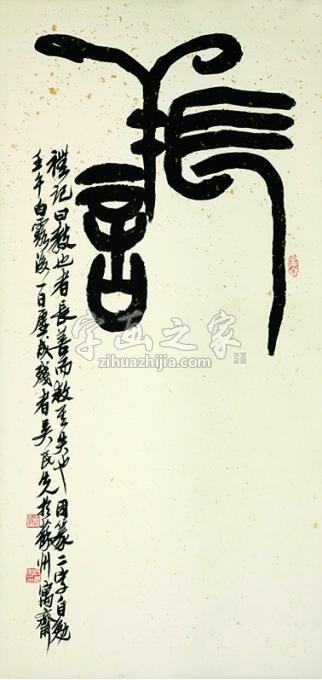 長善
禮记曰教也者長善而救其失也因篆二字自勉
壬午白露後 吴民先於蘇州寓齋
字画之家
zihuazhijia.com